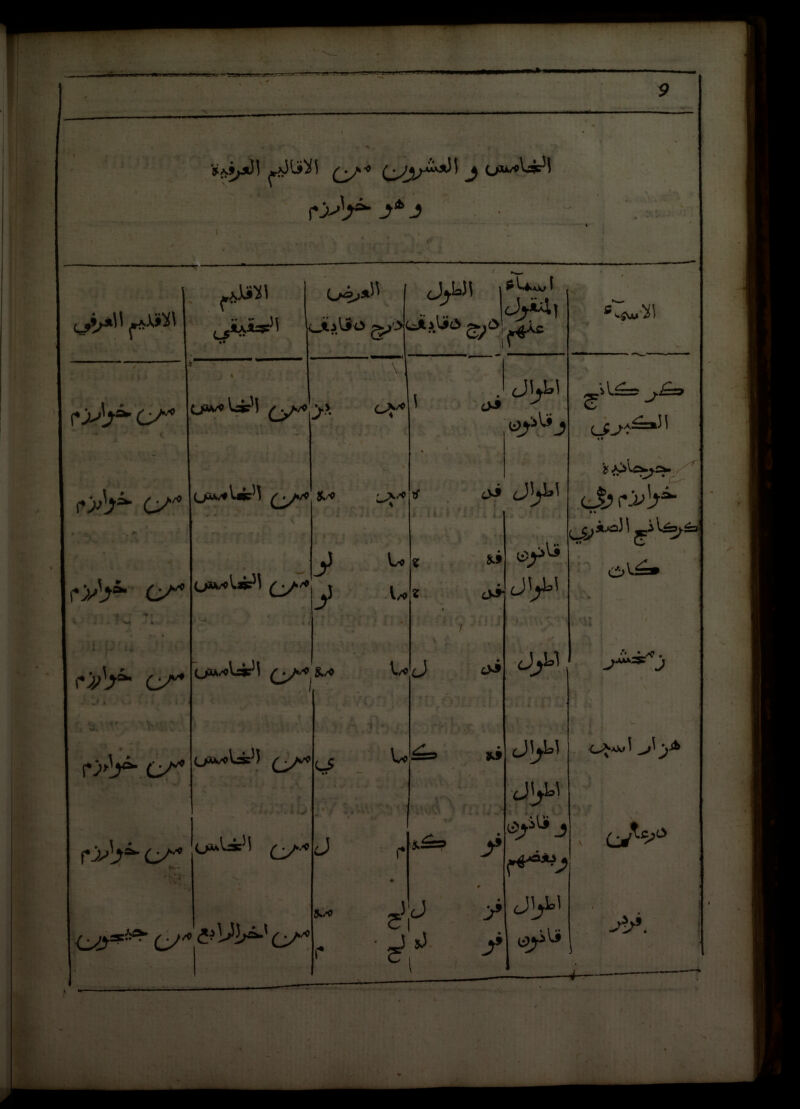 9
الخامس و العشرون من الاقاليم العرفية
و هو خوارزم
الاسماء | اسماء المنقول عنهم | الطول درج دقايق | العرض درج دقايق | الاقليم الحقيقي | الاقليم العرفي
كركانج الكبري | اطوال و قانون | فد ا | مب يز | من الخامس | من خوارزم
جرجانية خوارزم وهي كركانج الصغري | اطوال | فد ه | مب مه | من الخامس | من خوارزم
كاث | قانون | فه ح | ما لو | من الخامس | من خوارزم
اطوال | فد ح | ما لو
زمخشر | اطول | فد ل | ما مه | من الخامس | من خوارزم
هزار اسب | اطوال | فه ك | ما ي | من الخامس | من خوارزم
درعان | اطوال و قانون وبعضهم | فو كه | م ل | من الخامس | من خوارزم
فربر | اطوال | فز ل | لح مه | من اخر الرابع | من جيحون
قانون | فو له | لح م